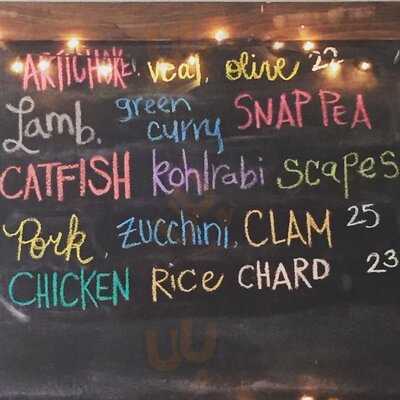 ARTICHOKE, veal, olive 22
Lamb, green curry SNAP PEA
CATFISH kohlrabi scapes
Pork, zucchini, CLAM 25
CHICKEN Rice CHARD 23